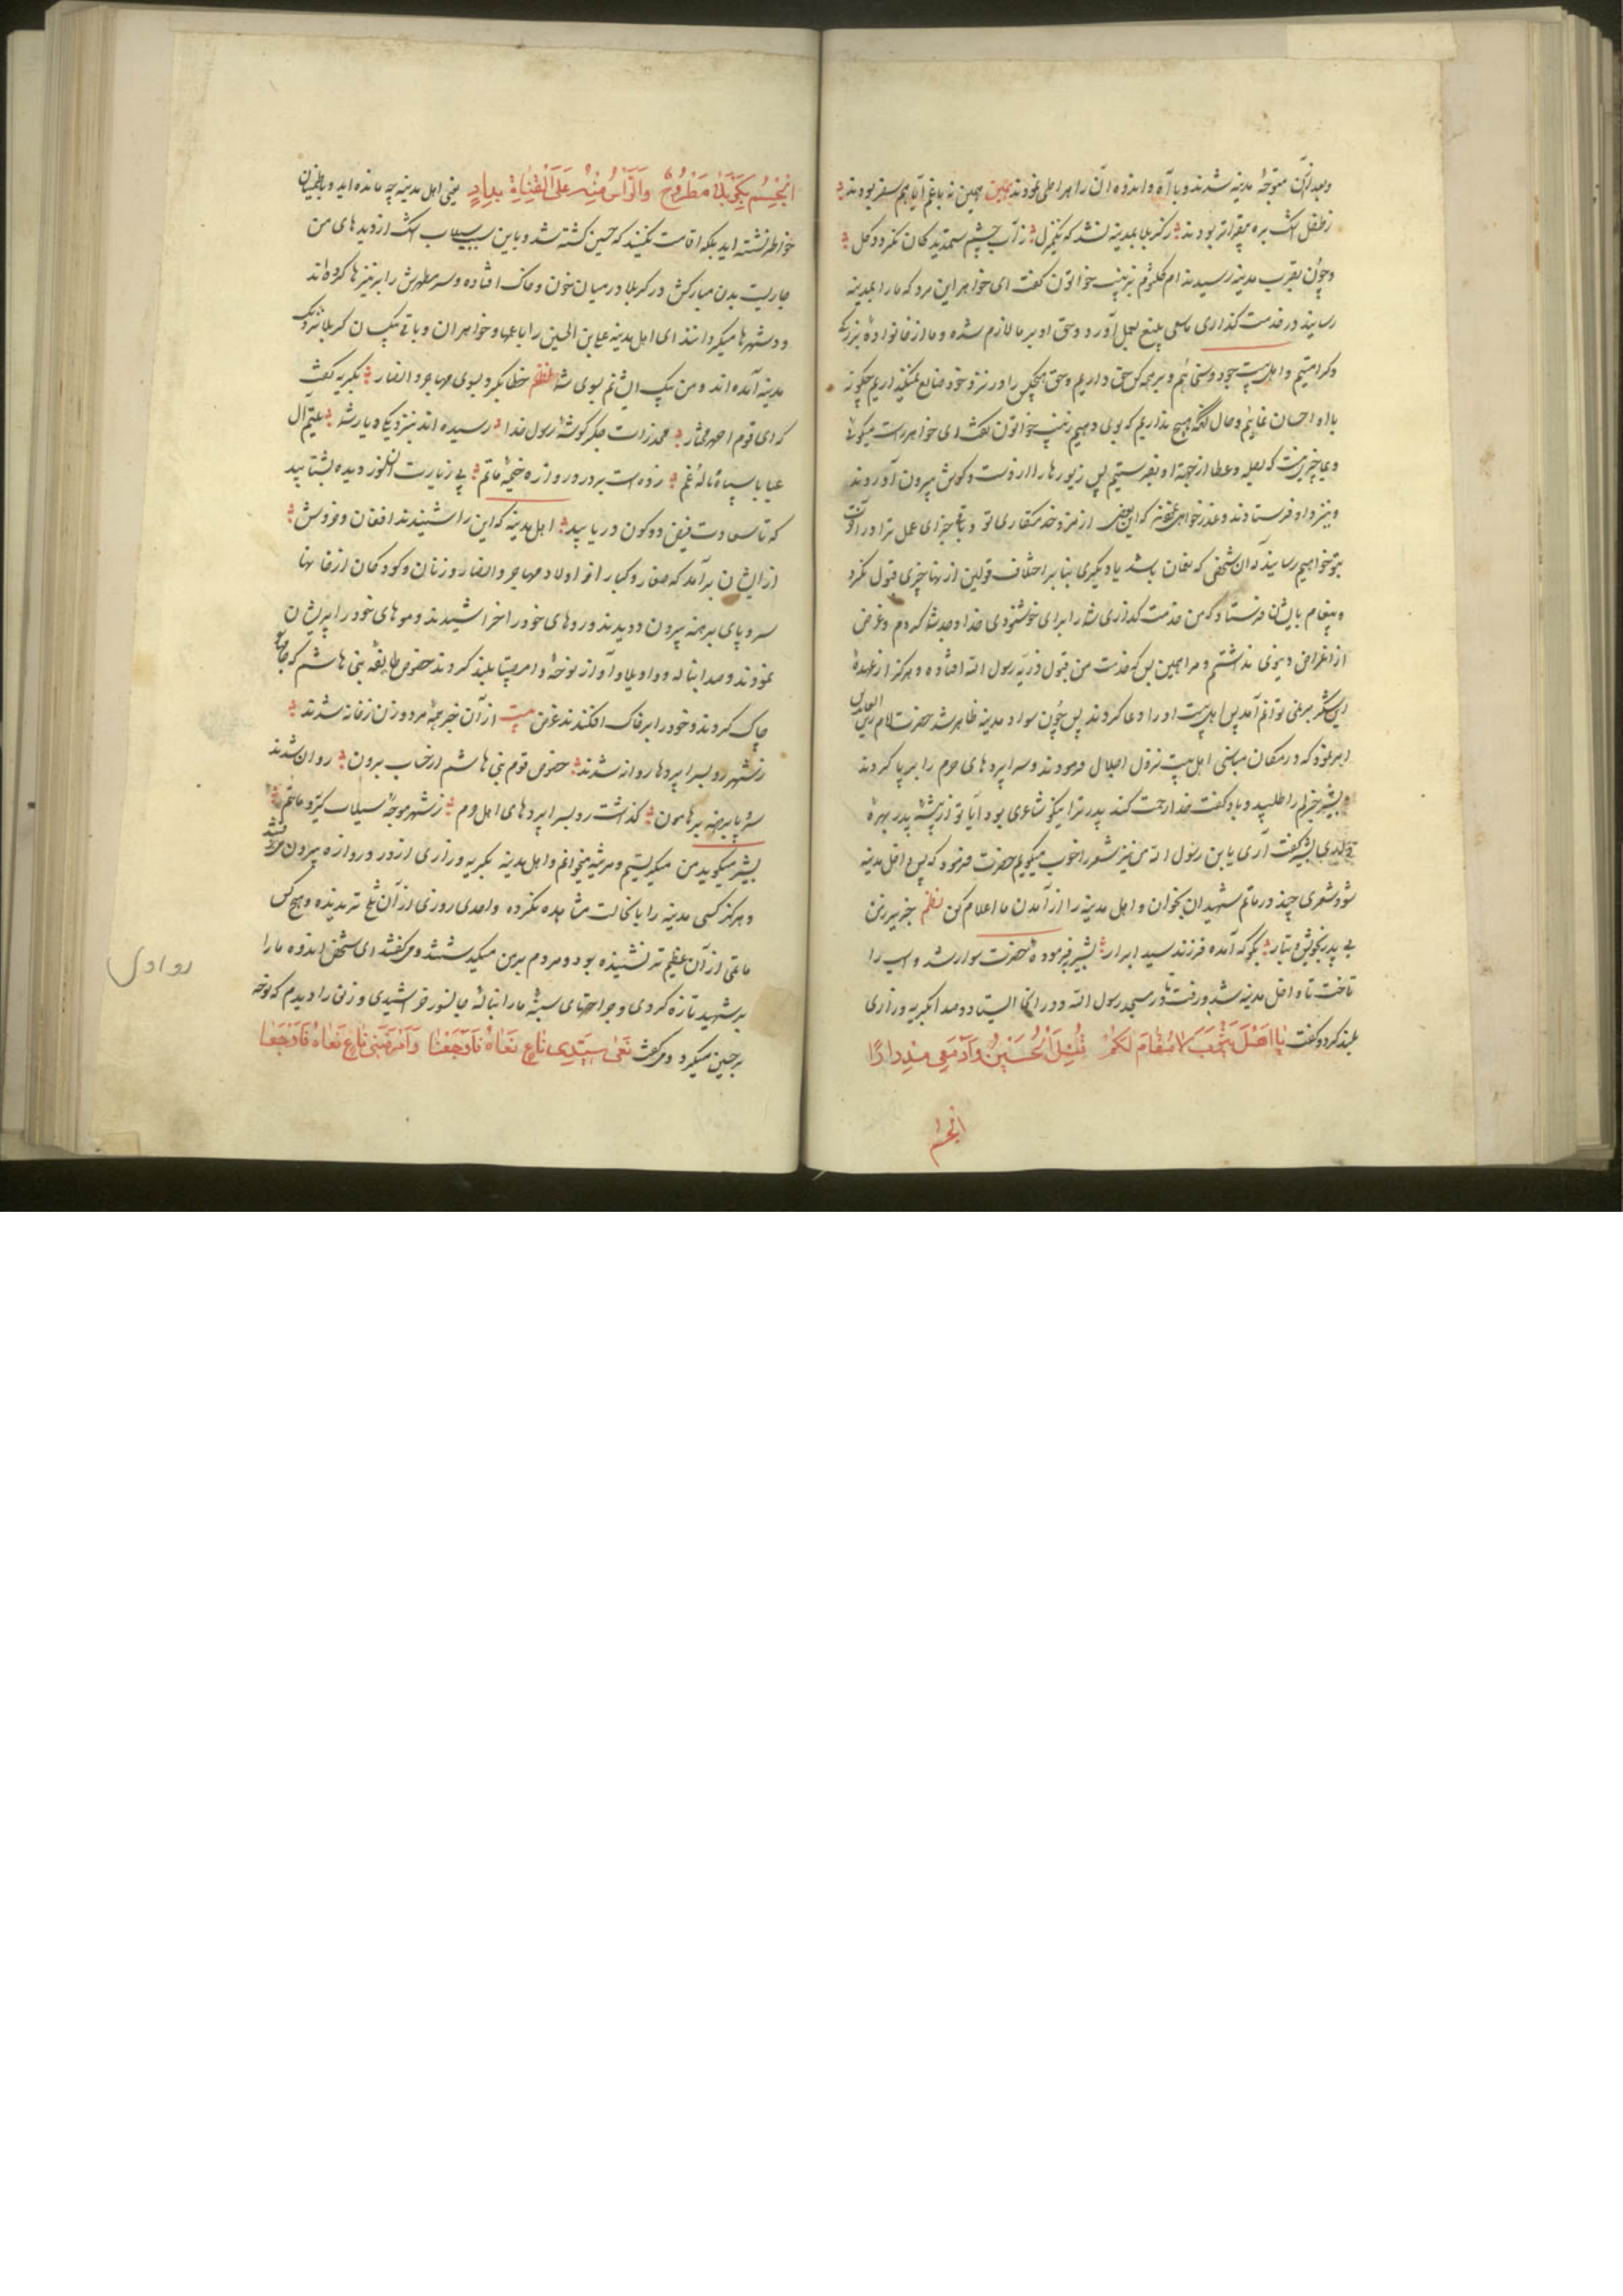 وبعد از آن متوجه مدینه شدند و با آه و اندوه آن راه را طی نمودند همین نه با غم آیا هم سفر بودند
ز طفل اشک بره بیقرارتر بودند ز کربلا بمدینه نشد که یکمنزل ز آب چشم
و چون بقرب مدینه رسیدند ام کلثوم بزینب خواتون گفت ای خواهر این مرد که ما را بمدینه
رسانید در خدمت گذاری ما سعی بلیغ بعمل آورد و حق او بر ما لازم شده و ما از خانواده بزرگ
و کرامتیم و اهل بیت جود و سخائیم و بر همه کس حق داریم و حق هیچکس را در نزد خود ضایع نمیگذاریم چگونه
با او احسان نمائیم و حال آنکه هیچ نداریم که بوی دهیم زینب خواتون گفت ای خواهر راست میگوئی
و ما چیزی نیست که بصله و عطا از جهة او بفرستیم پس زیورها را از دست و گوش بیرون آوردند
و بنزد او فرستادند و عذر خواهی نمودند که این بعضی از مزد خدمتکاری تو و باقی جزای عمل ترا در آخرت
بتو خواهیم رسانید آن شخص که نعمان باشد یا دیگری بنا بر اختلاف قولین از آنها چیزی قبول نکرد
و پیغام بایشان فرستاد که من خدمت گذاری شما را برای خوشنودی خدا و جد شما کردم و غرض
از اغراض دنیوی نداشتم و مرا همین بس که خدمت من قبول ذریه رسول الله افتاده و هرگز از عهدهٔ
این شکر بر نمی توانم آمد پس اهل بیت او را دعا کردند پس چون سواد مدینه ظاهر شد حضرت امام زین العابدین
امر نمود که در مکان مناسبی اهل بیت نزول اجلال فرمودند و سراپردهای حرم را بر پا کردند
و بشیر جزلم را طلبید و باو گفت خدا رحمت کند پدر ترا نیکو شاعری بود آیا تو از پیشهٔ پدر بهرهٔ
بشیر گفت آری یا بن رسول الله من نیز شعر را خوب میگویم حضرت فرمود که پس داخل مدینه
شو و شعری چند در ماتم شهیدان بخوان و اهل مدینه را از آمدن ما اعلام کن نظم خبر ببر ز من
بی پدر بخویش و تبار بگو که آمده فرزند سید ابرار بشیر بفرموده حضرت سوار شد و اسب را
تاخت تا داخل مدینه شد و رفت تا در مسجد رسول الله و در آنجا ایستاد و صدا بگریه و زاری
بلند کرد و گفت یا اهل یثرب لا مقام لکم قتل الحسین و ادمعی مدرارا
الجسم
الجسم بکربلا مطروح والرأس منه علی القناة یدار یعنی اهل مدینه چه مانده اید و باطمینان
خواطر نشسته اید بلکه اقامت نکنید که حسین کشته شد و باین سبب سیلاب اشک از دیدهای من
جاریست بدن مبارکش در کربلا در میان خون و خاک افتاده و سر مطهرش را بر نیزها کرده اند
و در شهرها میگردانند ای اهل مدینه علی بن الحسین را با عمها و خواهران و باقی بیکسان کربلا نزدیک
مدینه آمده اند و من پیک ایشانم بسوی شما نظم خطاب کرد بسوی مهاجر و انصار بگریه گفت
که ای قوم احمد مختار مخدرات جگر گوشهٔ رسول خدا رسیده اند بنزدیک دیار شما علیم آل
عبا با سپاه نالهٔ غم زده است بر در دروازه خیمه ماتم پی زیارت آن نور دیده بشتابید
که تا سعادت فیض دو کون دریابید اهل مدینه که این را شنیدند افغان و خروش
از ایشان بر آمد که صغار و کبار از اولاد مهاجر و انصار و زنان و کودکان از خانها
سر و پای برهنه بیرون دویدند و روهای خود را خراشیدند و موهای خود را پریشان
نمودند و صدا بناله و واویلا و آواز نوحه و وامصیبتا بلند کردند خصوص طایفهٔ بنی هاشم که جامها
چاک کردند و خود را بر خاک افکندند غرض بیت از آن خبر همه مرد و زن ز خانه شدند
ز شهر رو بسراپردها روانه شدند خصوص قوم بنی هاشم از حساب برون روان شدند
سر و پا برهنه بر هامون گذشت رو بسراپردهای اهل حرم ز شهر موجهٔ سیلاب گریه و ماتم
بشیر میگوید من میگریستم و مرثیه میخوانم و اهل مدینه بگریه و زاری از در دروازه بیرون میرفتند
و هرگز کسی مدینه را باینحالت مشاهده نکرده و احدی روزی از آن تلخ تر ندیده و هیچ کس
ماتمی از آن عظیم تر نشنیده بود و مردم بر من میگذشتند و میگفتند ای شخص اندوه ما را
بر شهید تازه کردی و جراحتهای سینهٔ ما را بنالهٔ جانسوز خراشیدی و زنی را دیدم که نوحه
بر حسین میکرد و میگفت نعی سیدی ناع نعاه فاوجعا وامرضنی ناع نعاه فافجعا